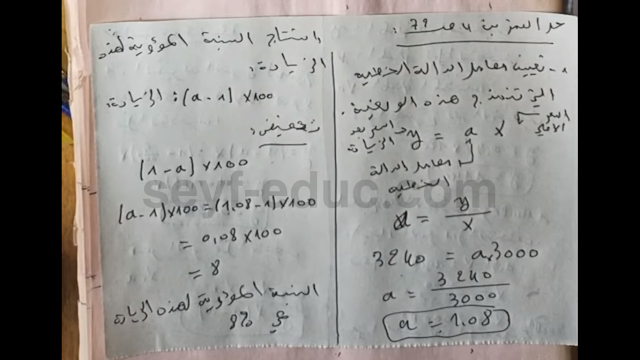 حل التمرين 4 ص 79 :
1- تعيين معامل الدالة الخطية
التي تنمذج هذه الوضعية.
السعر الأصلي
y = a x
السعر بعد الزيادة
معامل الدالة
الخطية
a = y/x
3240 = a.3000
a = 3240/3000
a = 1.08
استنتاج النسبة المؤوية لهذه
الزيادة:
الزيادة: (a - 1) x100
تخفيض:
(1 - a) x100
(a-1)x100=(1.08-1)x100
= 0,08 x100
= 8
النسبة المؤوية لهذه الزيادة
هي 8%
seyf-educ.com